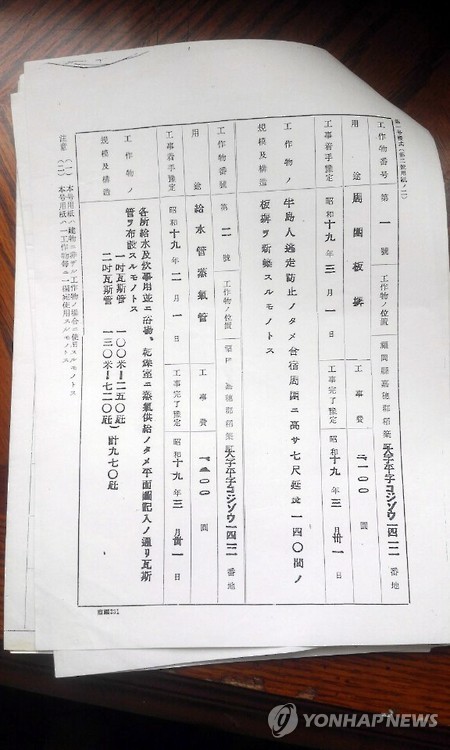 工作物番号 第一號 工作物ノ位置 福岡縣嘉穂郡稲築 大字平字コジゾウ一四二一番地
用途 周圍板塀 工事費 円
工事着手豫定 昭和十九年三月一日 工事完了豫定 昭和十九年三月卅一日
工作物ノ規模及構造 半島人逃走防止ノタメ合宿周圍ニ高サ七尺延長一四〇間ノ
板塀ヲ新築スルモノトス
工作物番號 第二號 工作物ノ位置 嘉穂郡稲築 大字平字コジゾウ一四二一番地
用途 給水管蒸氣管 工事費 圓
工事着手豫定 昭和十九年二月一日 工事完了豫定 昭和十九年三月卅一日
工作物ノ規模及構造 各所給水及炊事用並ニ浴物、乾燥室ニ蒸氣供給ノタメ平面圖記入ノ通リ瓦斯
管ヲ布設スルモノトス
一吋瓦斯管 一〇〇米
二吋瓦斯管 一三〇米
注意 (一) 本号用紙ハ建物ニ非ザル工作物ノ場合ニ使用スルモノトス
(二) 本号用紙ハ一工作物毎ニ一欄宛使用スルモノトス
YONHAPNEWS